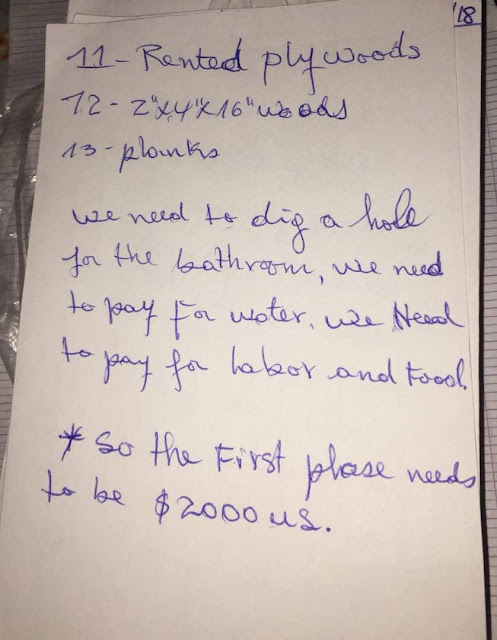 '18
11 - Rented plywoods
12 - 2"x4"x16" woods
13 - planks
we need to dig a hole
for the bathroom, we need
to pay For water. we Need
to pay for labor and Food.
* So the First phase needs
to be $2000 us.